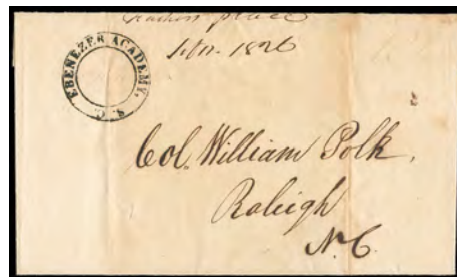 place
1826
EBENEZER ACADEMY, S. C.
Col. William Polk,
Raleigh
N.C.